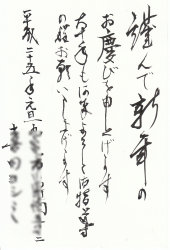 謹んで新年の
お慶びを申し上げます
本年もよろしくご指導
の程お願いいたします
平成二十五年元旦